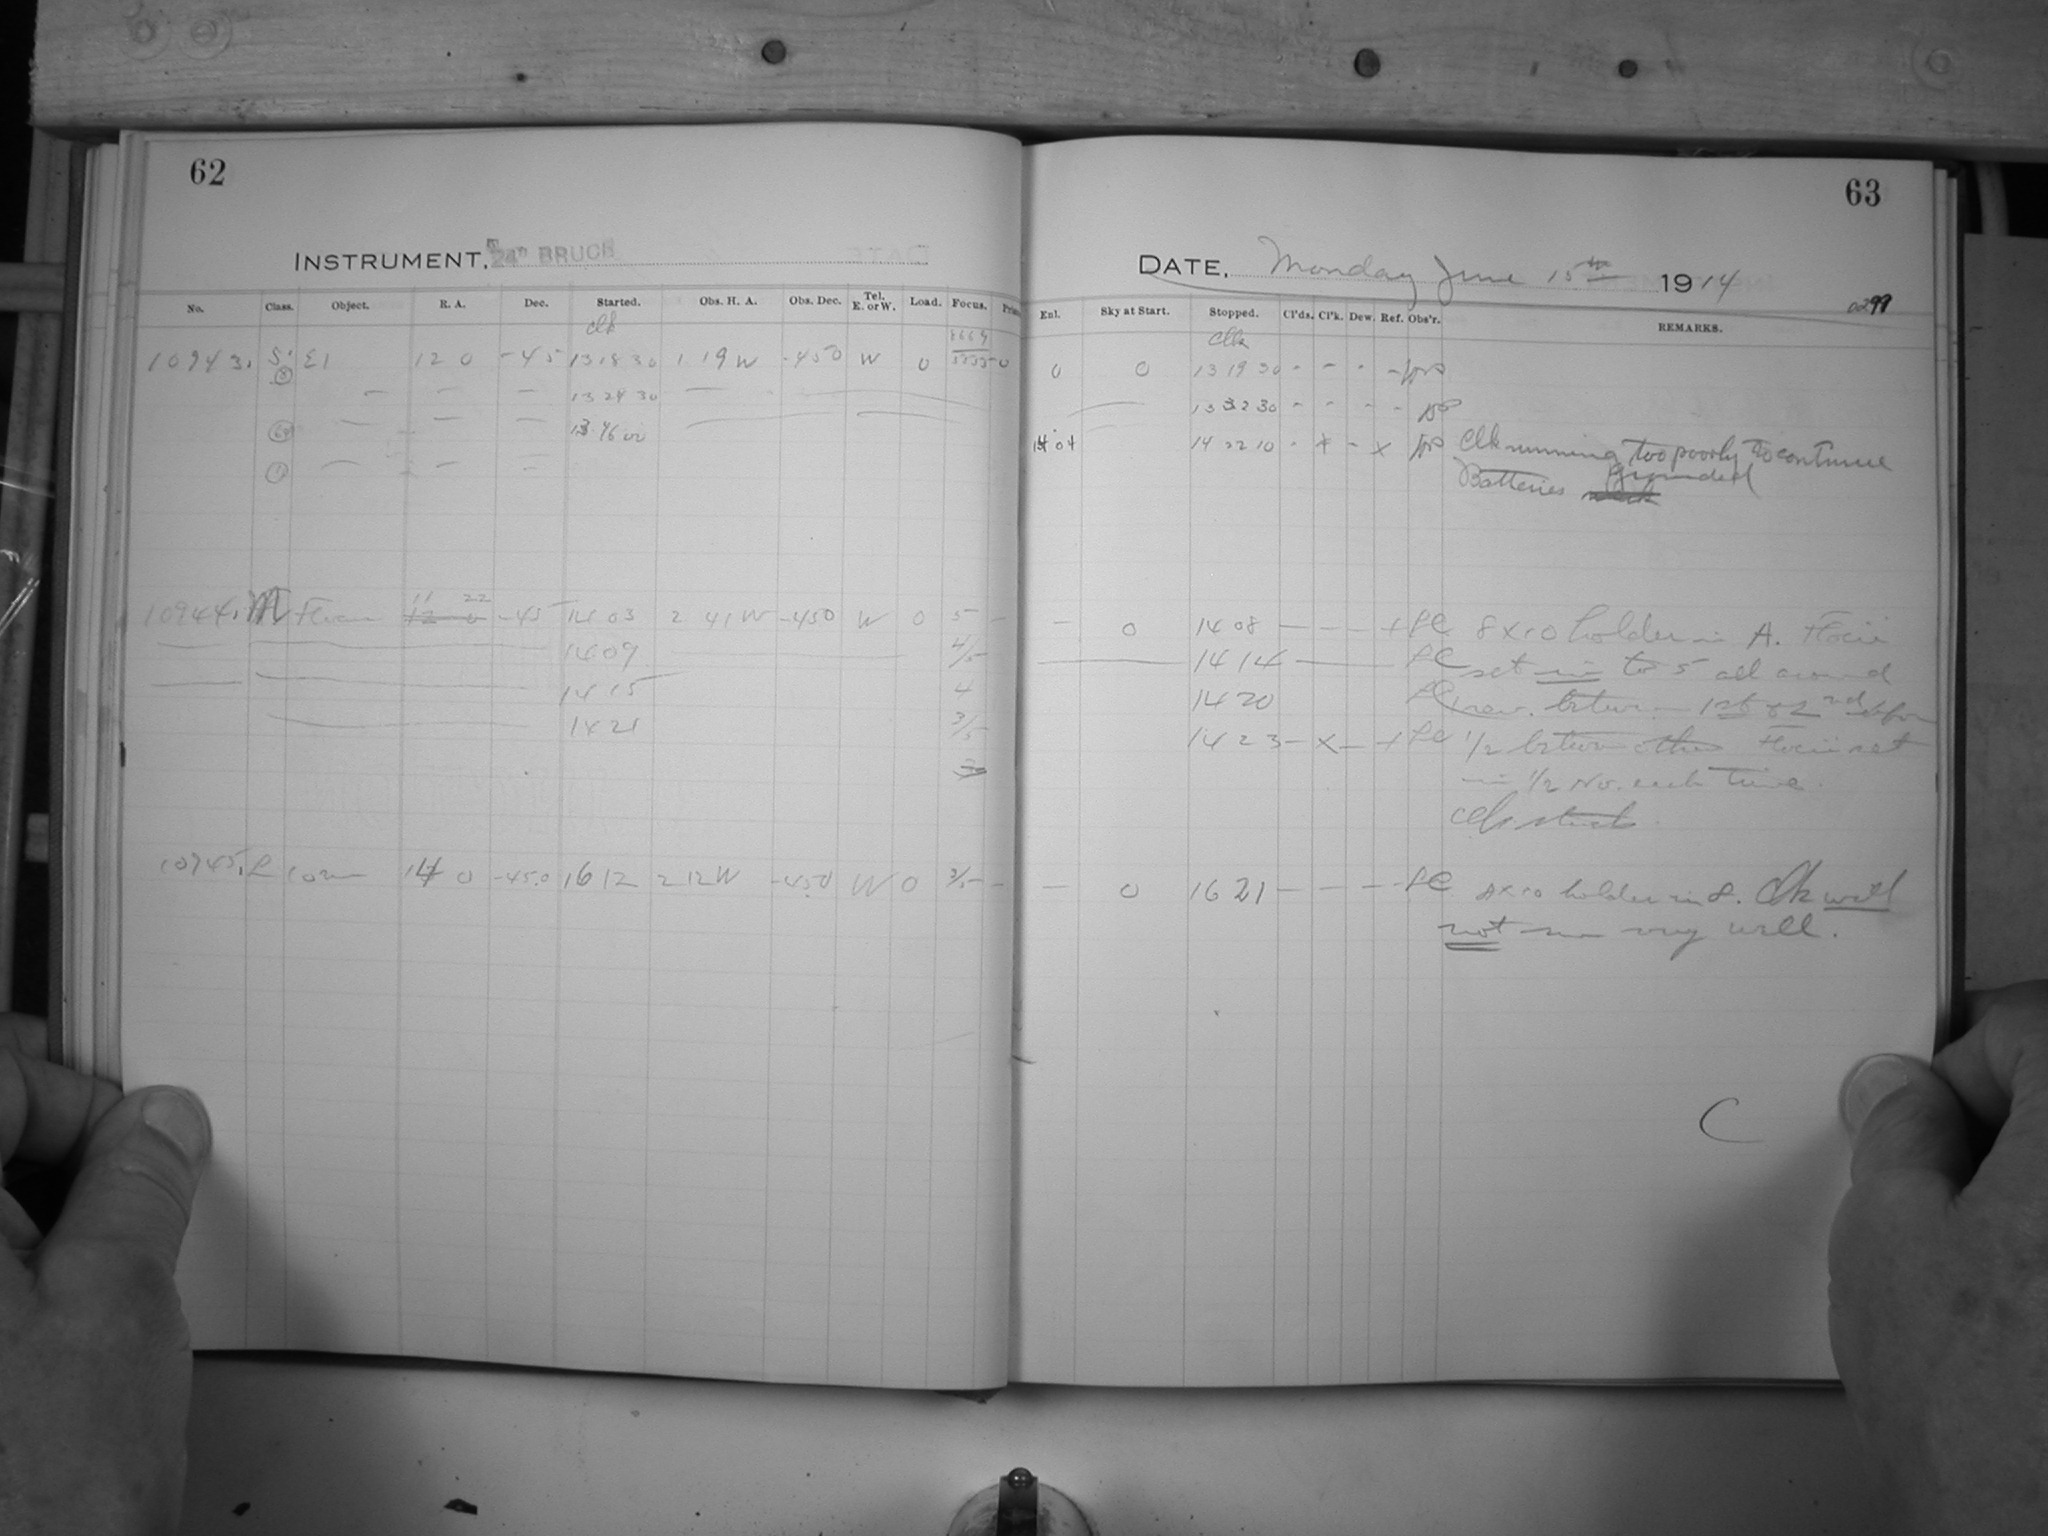 62
63
INSTRUMENT, 24" BRUCE
DATE, Monday June 15th 1914
No. Class. Object. R. A. Dec. Started. Obs. H. A. Obs. Dec. Tel. E. or W. Load. Focus.
Enl. Sky at Start. Stopped. Cl'ds. Cl'k. Dew. Ref. Obs'r. REMARKS.
Clk
Clk
10943. S' E1 12 0 -45 13 18 30 1 19 W -45 0 W 0 0
0 0 13 19 30 - - - -
(8)
— — — 13 24 30
13 32 30 - - - -
— — — 13 46 00
14 04 14 22 10 - x - x Clk running too poorly to continue
Batteries Grounded
10944. M Focus 12 0 -45 14 03 2 41 W -45 0 W 0 5 –
11 22
– 0 14 08 – – – + LC 8 x 10 holder in A. Focii
14 09 4/5
14 14 LC set in to 5 all around
14 15 4
14 20 LC between 1st & 2nd
14 21 3/5
14 23 – x – + LC 1/2 between others Focii set
3
in 1/2 No. each time.
Clk stuck
10945. L 14 0 -45.0 16 12 2 12 W -45.0 W 0 3/5 –
– 0 16 21 – – – – LC 8 x 10 holder in 8. Clk will
not run very well.
C